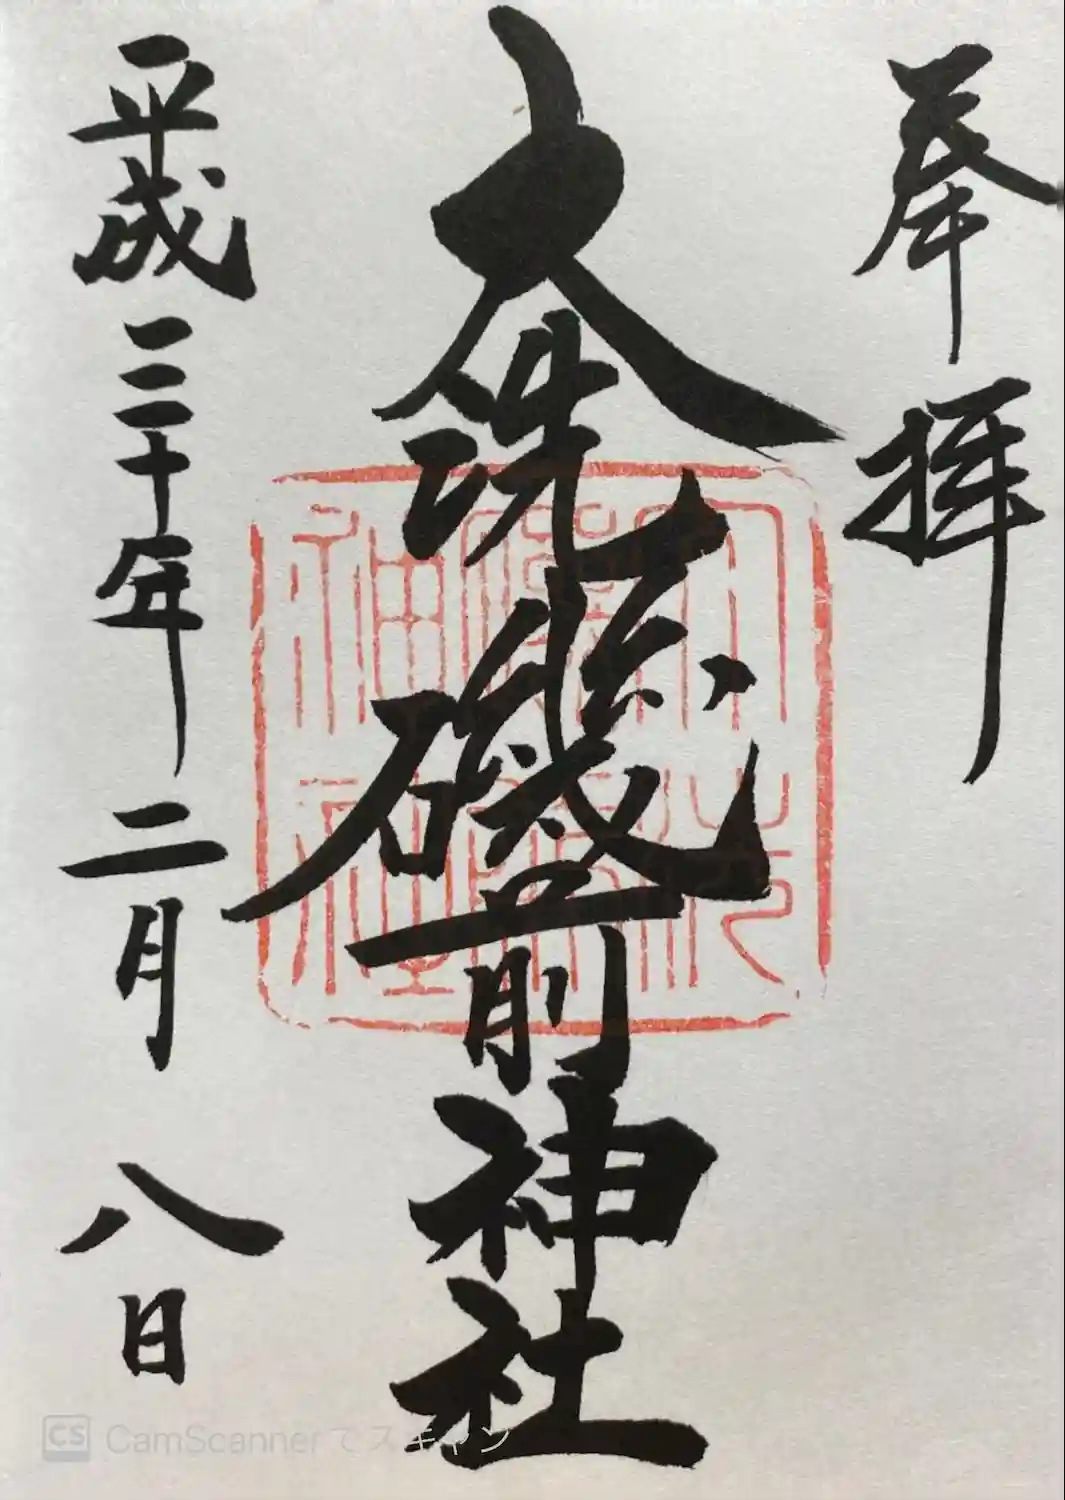 奉拝
大洗磯前神社
平成三十年二月八日
CS CamScannerでスキャン